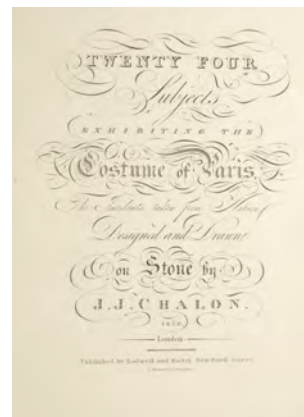 TWENTY FOUR
Subjects
EXHIBITING THE
Costume of Paris,
The Incidents taken from Nature,
Designed and Drawn
on Stone by
J. J. CHALON.
London
Published by Rodwell and Martin New Bond Street